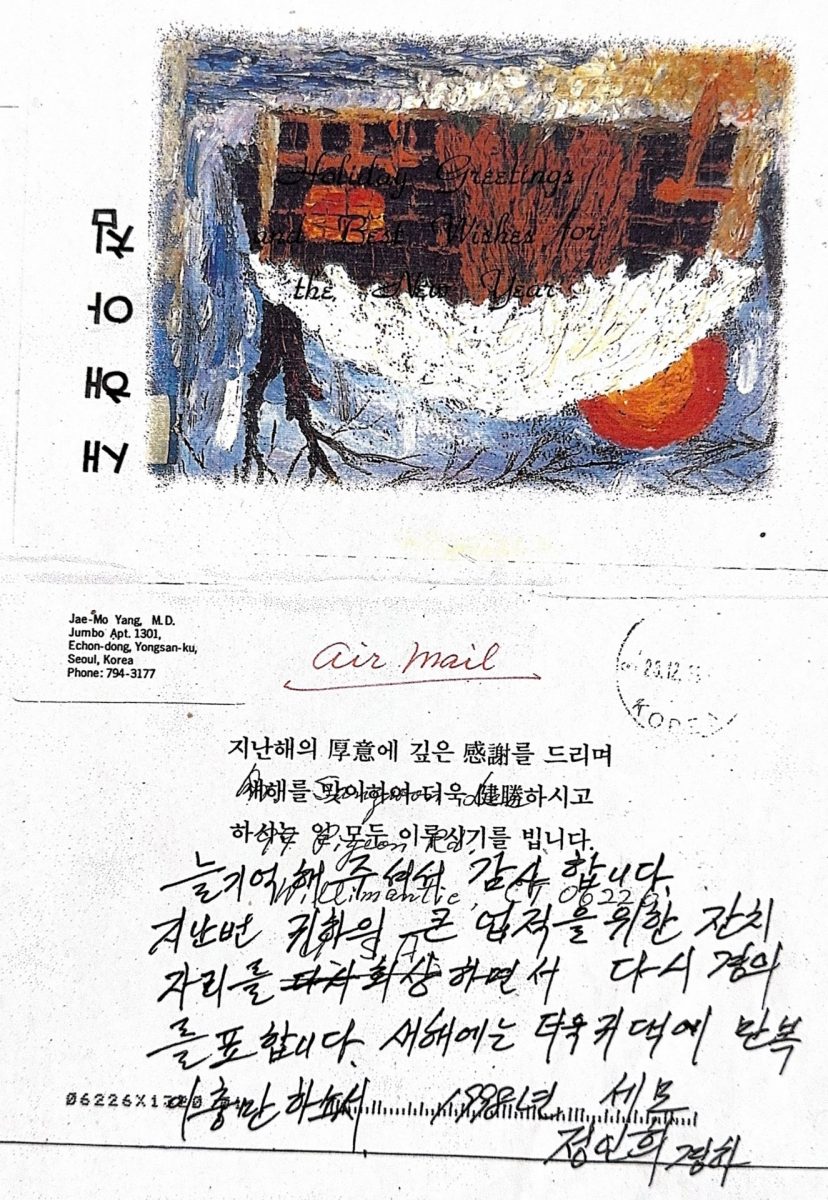 새해 아침
Holiday Greetings
and Best Wishes for
the New Year
Jae-Mo Yang, M.D.
Jumbo Apt. 1301,
Echon-dong, Yongsan-ku,
Seoul, Korea
Phone: 794-3177
air mail
KOREA
지난해의 厚意에 깊은 感謝를 드리며
새해를 맞이하여 더욱 健勝하시고
하시는 일 모두 이루시기를 빕니다.
늘 기억해 주셔서 감사합니다.
Willimantic, CT 06226
지난번 귀하의 큰 업적을 위한 잔치
자리를 회상하면서 다시 경의
를 표합니다. 새해에는 더욱 귀댁에 만복
이 충만하소서 1998년 세모
06226X1200
정인희 경하